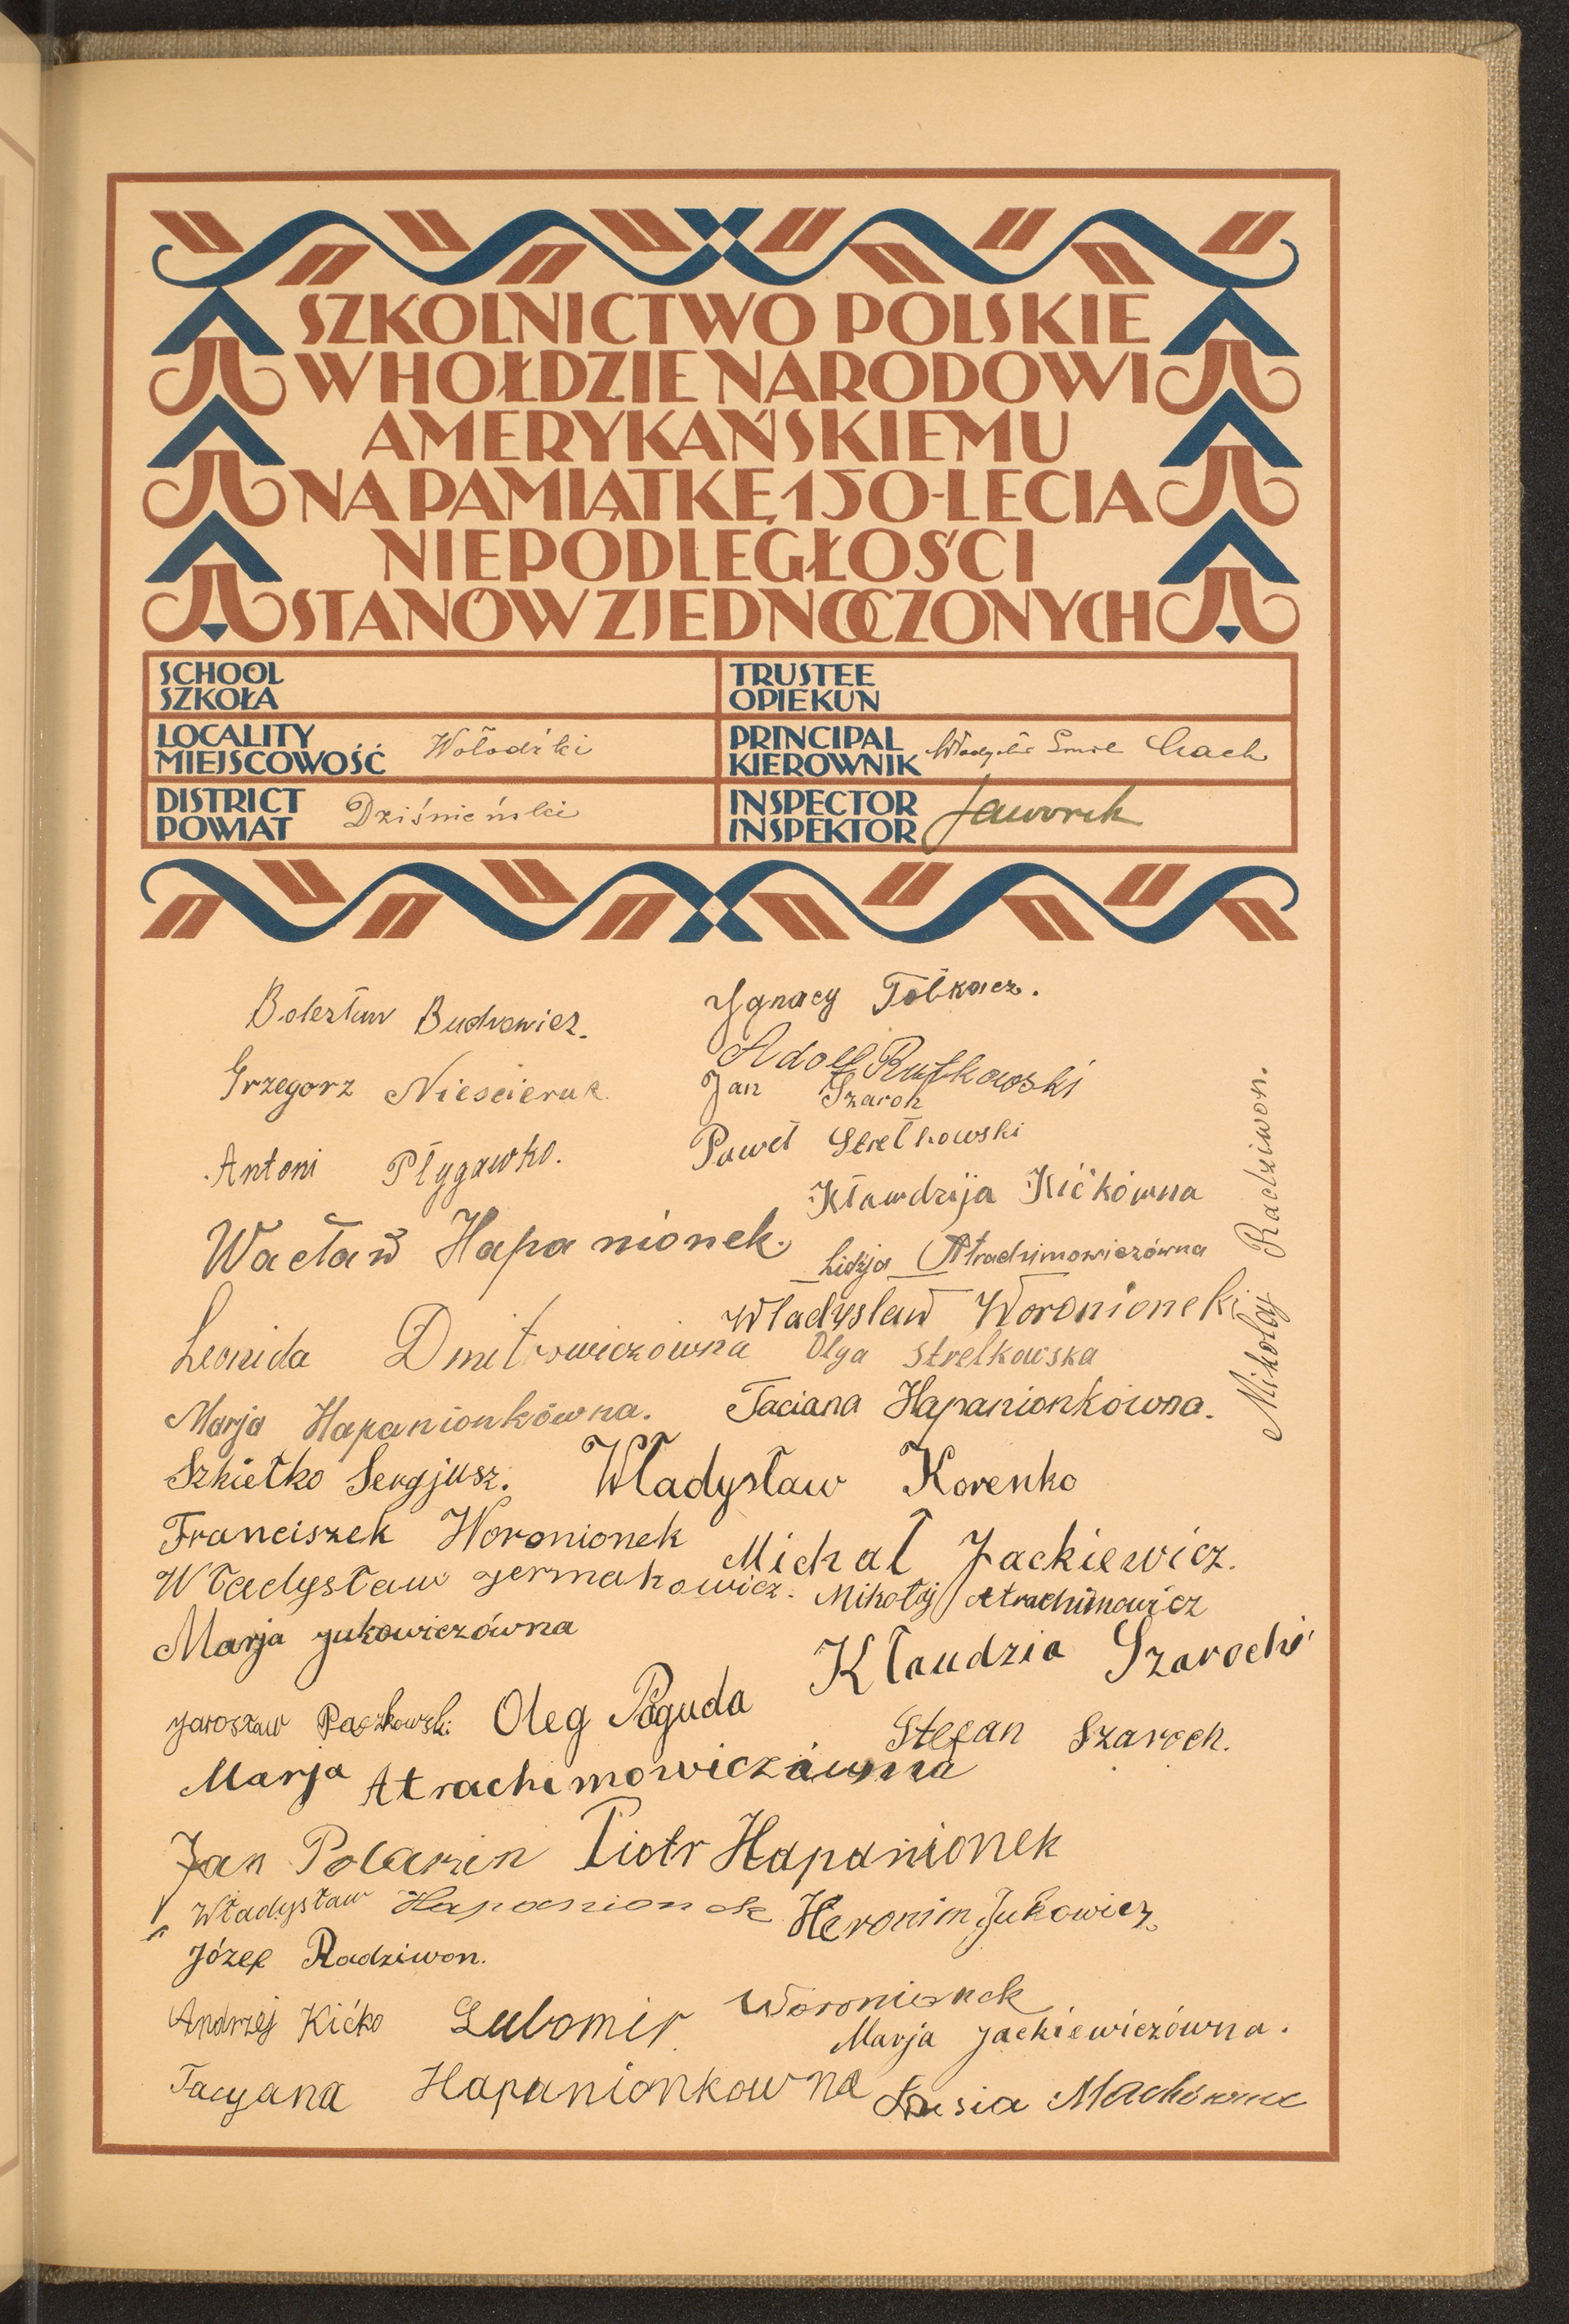 SZKOLNICTWO POLSKIE
W HOŁDZIE NARODOWI
AMERYKAŃSKIEMU
NA PAMIĄTKĘ 150-LECIA
NIEPODLEGŁOŚCI
STANÓW ZJEDNOCZONYCH
SCHOOL
SZKOŁA
TRUSTEE
OPIEKUN
LOCALITY
MIEJSCOWOŚĆ
Wołodźki
PRINCIPAL
KIEROWNIK
DISTRICT
POWIAT
Dziśnieński
INSPECTOR
INSPEKTOR
Jaworek
Bolesław Buchowicz.
Ygnacy Tołkacz.
Adolf Rutkowski
Grzegorz Niescieruk.
Jan Szaroh
Antoni Pługawko.
Paweł Strełkowski
Kławdzija Kićkówna
Wacław Hapanionek.
Lidzja Atrachimowiczówna
Władysław Woronionek
Mikołaj Radziwon.
Leonida Dmitrowiczówna
Olga Strelkowska
Marja Hapanionkówna.
Taciana Hapanionkówna.
Szkiełko Sergjusz.
Władysław Korenko
Franciszek Woronionek
Michał Jackiewicz.
Władysław Jermakowicz.
Mikołaj Atrachimowicz
Marja Jukowiczówna
Kłaudzia Szaroch
Jarosław Paszkowski
Oleg Poguda
Stefan Szaroch.
Marja Atrachimowiczówna
Jan Polarzin
Piotr Hapanionek
Władysław Hapanionek
Heronim Jukowicz
Józef Radziwon.
Andrzej Kićko
Lubomir Woronionek
Marja Jackiewiczówna.
Tacyana Hapanionkowna